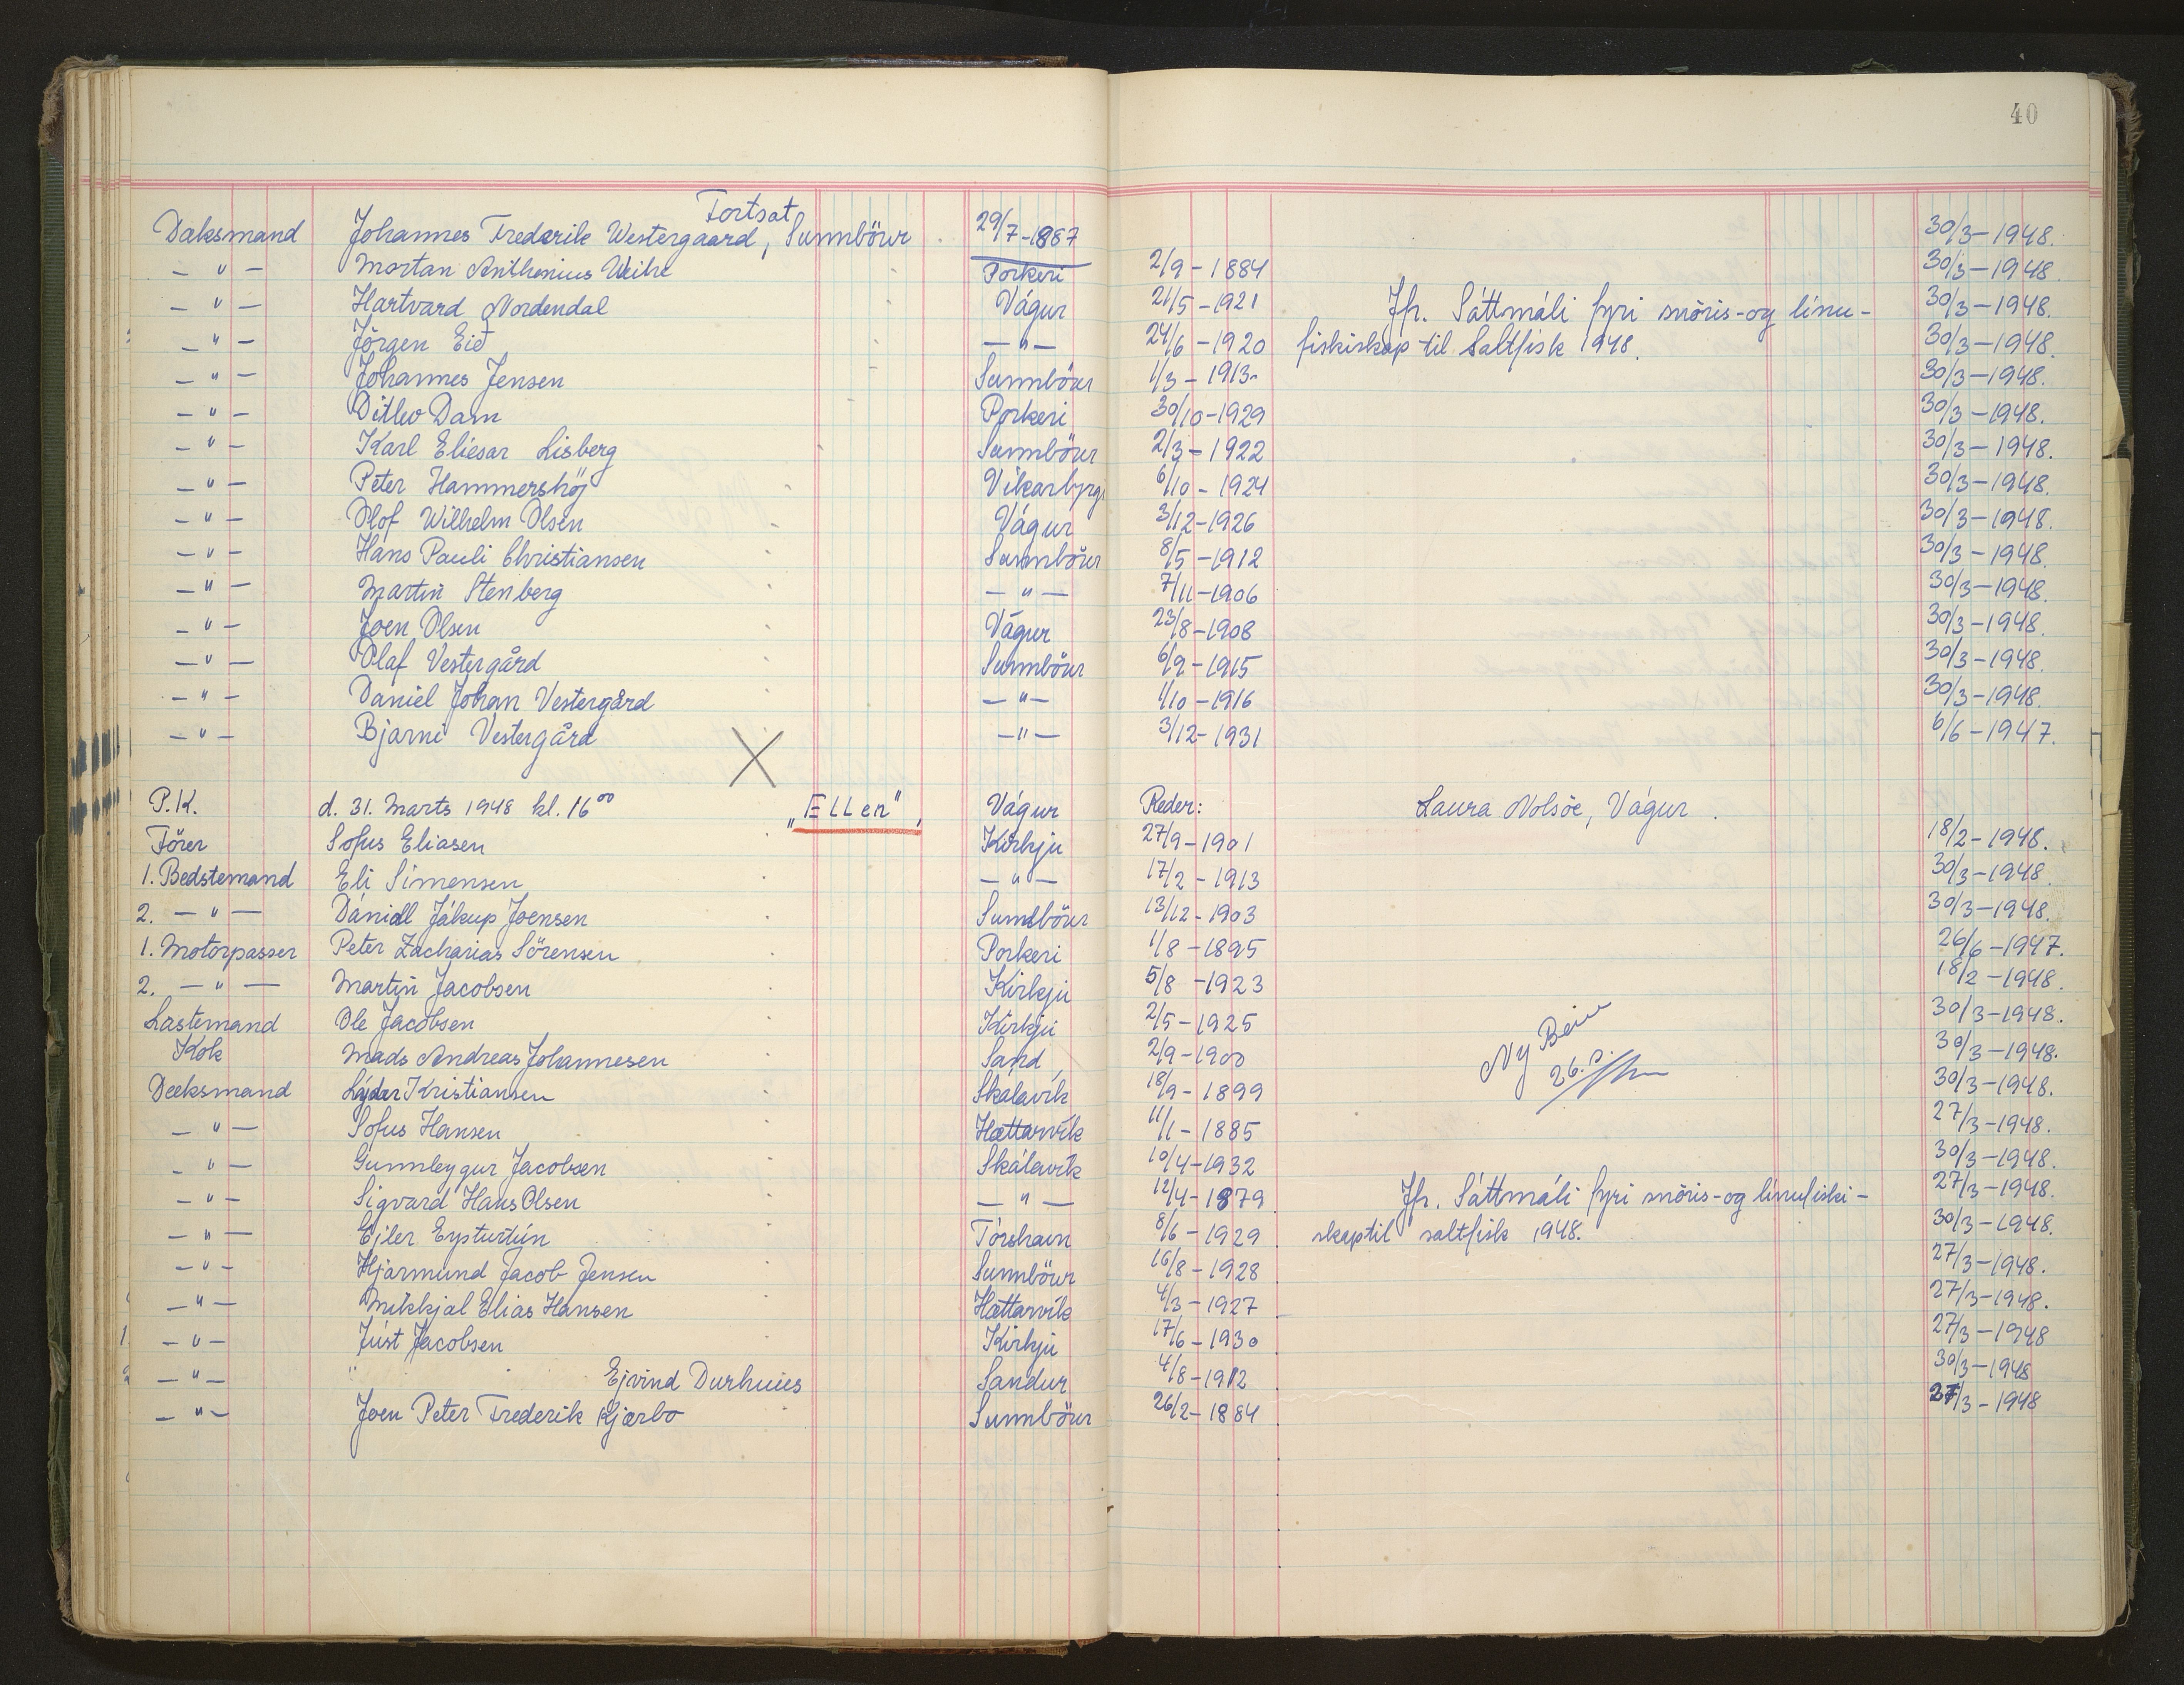 40
Fortsat
Daksmand Johannes Frederik Westergaard, Sunnbörur 29/7-1887 30/3-1948.
— " — Mortan Anthonius Weihe Porkeri 2/9-1884 30/3-1948.
— " — Hartvard Nordendal Vágur 21/5-1921 Jfr. Sáttmáli fyri snöris-og línu- 30/3-1948.
— " — Jörgen Eið — " — 24/6-1920 fiskiskap til Saltfisk 1948. 30/3-1948.
— " — Johannes Jensen Sunnbörur 1/3-1913. 30/3-1948.
— " — Ditlev Dam Porkeri 30/10-1929 30/3-1948.
— " — Karl Eliesar Lisberg Sunnbörur 2/3-1922 30/3-1948.
— " — Peter Hammershöj Víkarbyrgi 6/10-1924 30/3-1948.
— " — Olof Wilhelm Olsen Vágur 3/12-1926 30/3-1948.
— " — Hans Pauli Christiansen Sunnbörur 8/5-1912 30/3-1948.
— " — Martin Stenberg — " — 7/11-1906 30/3-1948.
— " — Joen Olsen Vágur 23/8-1908 30/3-1948.
— " — Olaf Vestergård Sunnbörur 6/9-1915 30/3-1948.
— " — Daniel Johan Vestergård — " — 1/10-1916 30/3-1948.
— " — Bjarni Vestergård — " — 3/12-1931 6/6-1947.
P.K. d. 31. Marts 1948 kl. 16⁰⁰ „Ellen", Vágur Reder: Laura Nolsöe, Vágur.
Förer Sofus Eliasen Kirkju 27/9-1901 18/2-1948.
1. Bedstemand Eli Simensen — " — 17/2-1913 30/3-1948.
2. — " — Dániál Jákup Joensen Sumbörur 13/12-1903 30/3-1948.
1. Motorpasser Peter Zacharias Sörensen Porkeri 1/8-1895 26/6-1947.
2. — " — Martin Jacobsen Kirkju 5/8-1923 18/2-1948.
Lastemand Ole Jacobsen Kirkju 2/5-1925 30/3-1948.
Kok Mads Andreas Johannesen Sand 2/9-1900 Ny 30/3-1948.
Deeksmand Lýdar Kristiansen Skálavík 18/9-1899 26. 30/3-1948.
— " — Sofus Hansen Hattarvík 11/1-1885 27/3-1948.
— " — Gunnleygur Jacobsen Skálavík 10/4-1932 30/3-1948.
— " — Sigvard Hans Olsen — " — 12/4-1879 Jfr. Sáttmáli fyri snöris-og línufiski- 27/3-1948.
— " — Ejler Eysturtún Tórshavn 8/6-1929 skap til saltfisk 1948. 30/3-1948.
— " — Hjarmund Jacob Jensen Sunnbörur 16/8-1928 27/3-1948.
— " — Mikkjal Elias Hansen Hattarvík 4/3-1927 27/3-1948.
— " — Júst Jacobsen Kirkju 17/6-1930 27/3-1948
— " — Ejvind Durhuus Sandur 4/8-1912 30/3-1948
— " — Joen Peter Frederik Kjærbo Sunnbörur 26/2-1884 27/3-1948